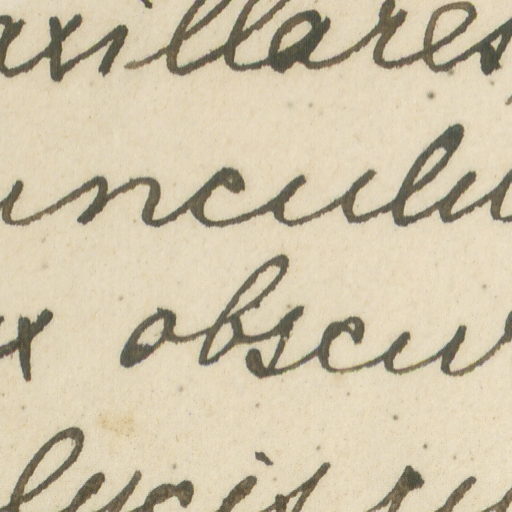 axillares
unculu
x obscu
lycis